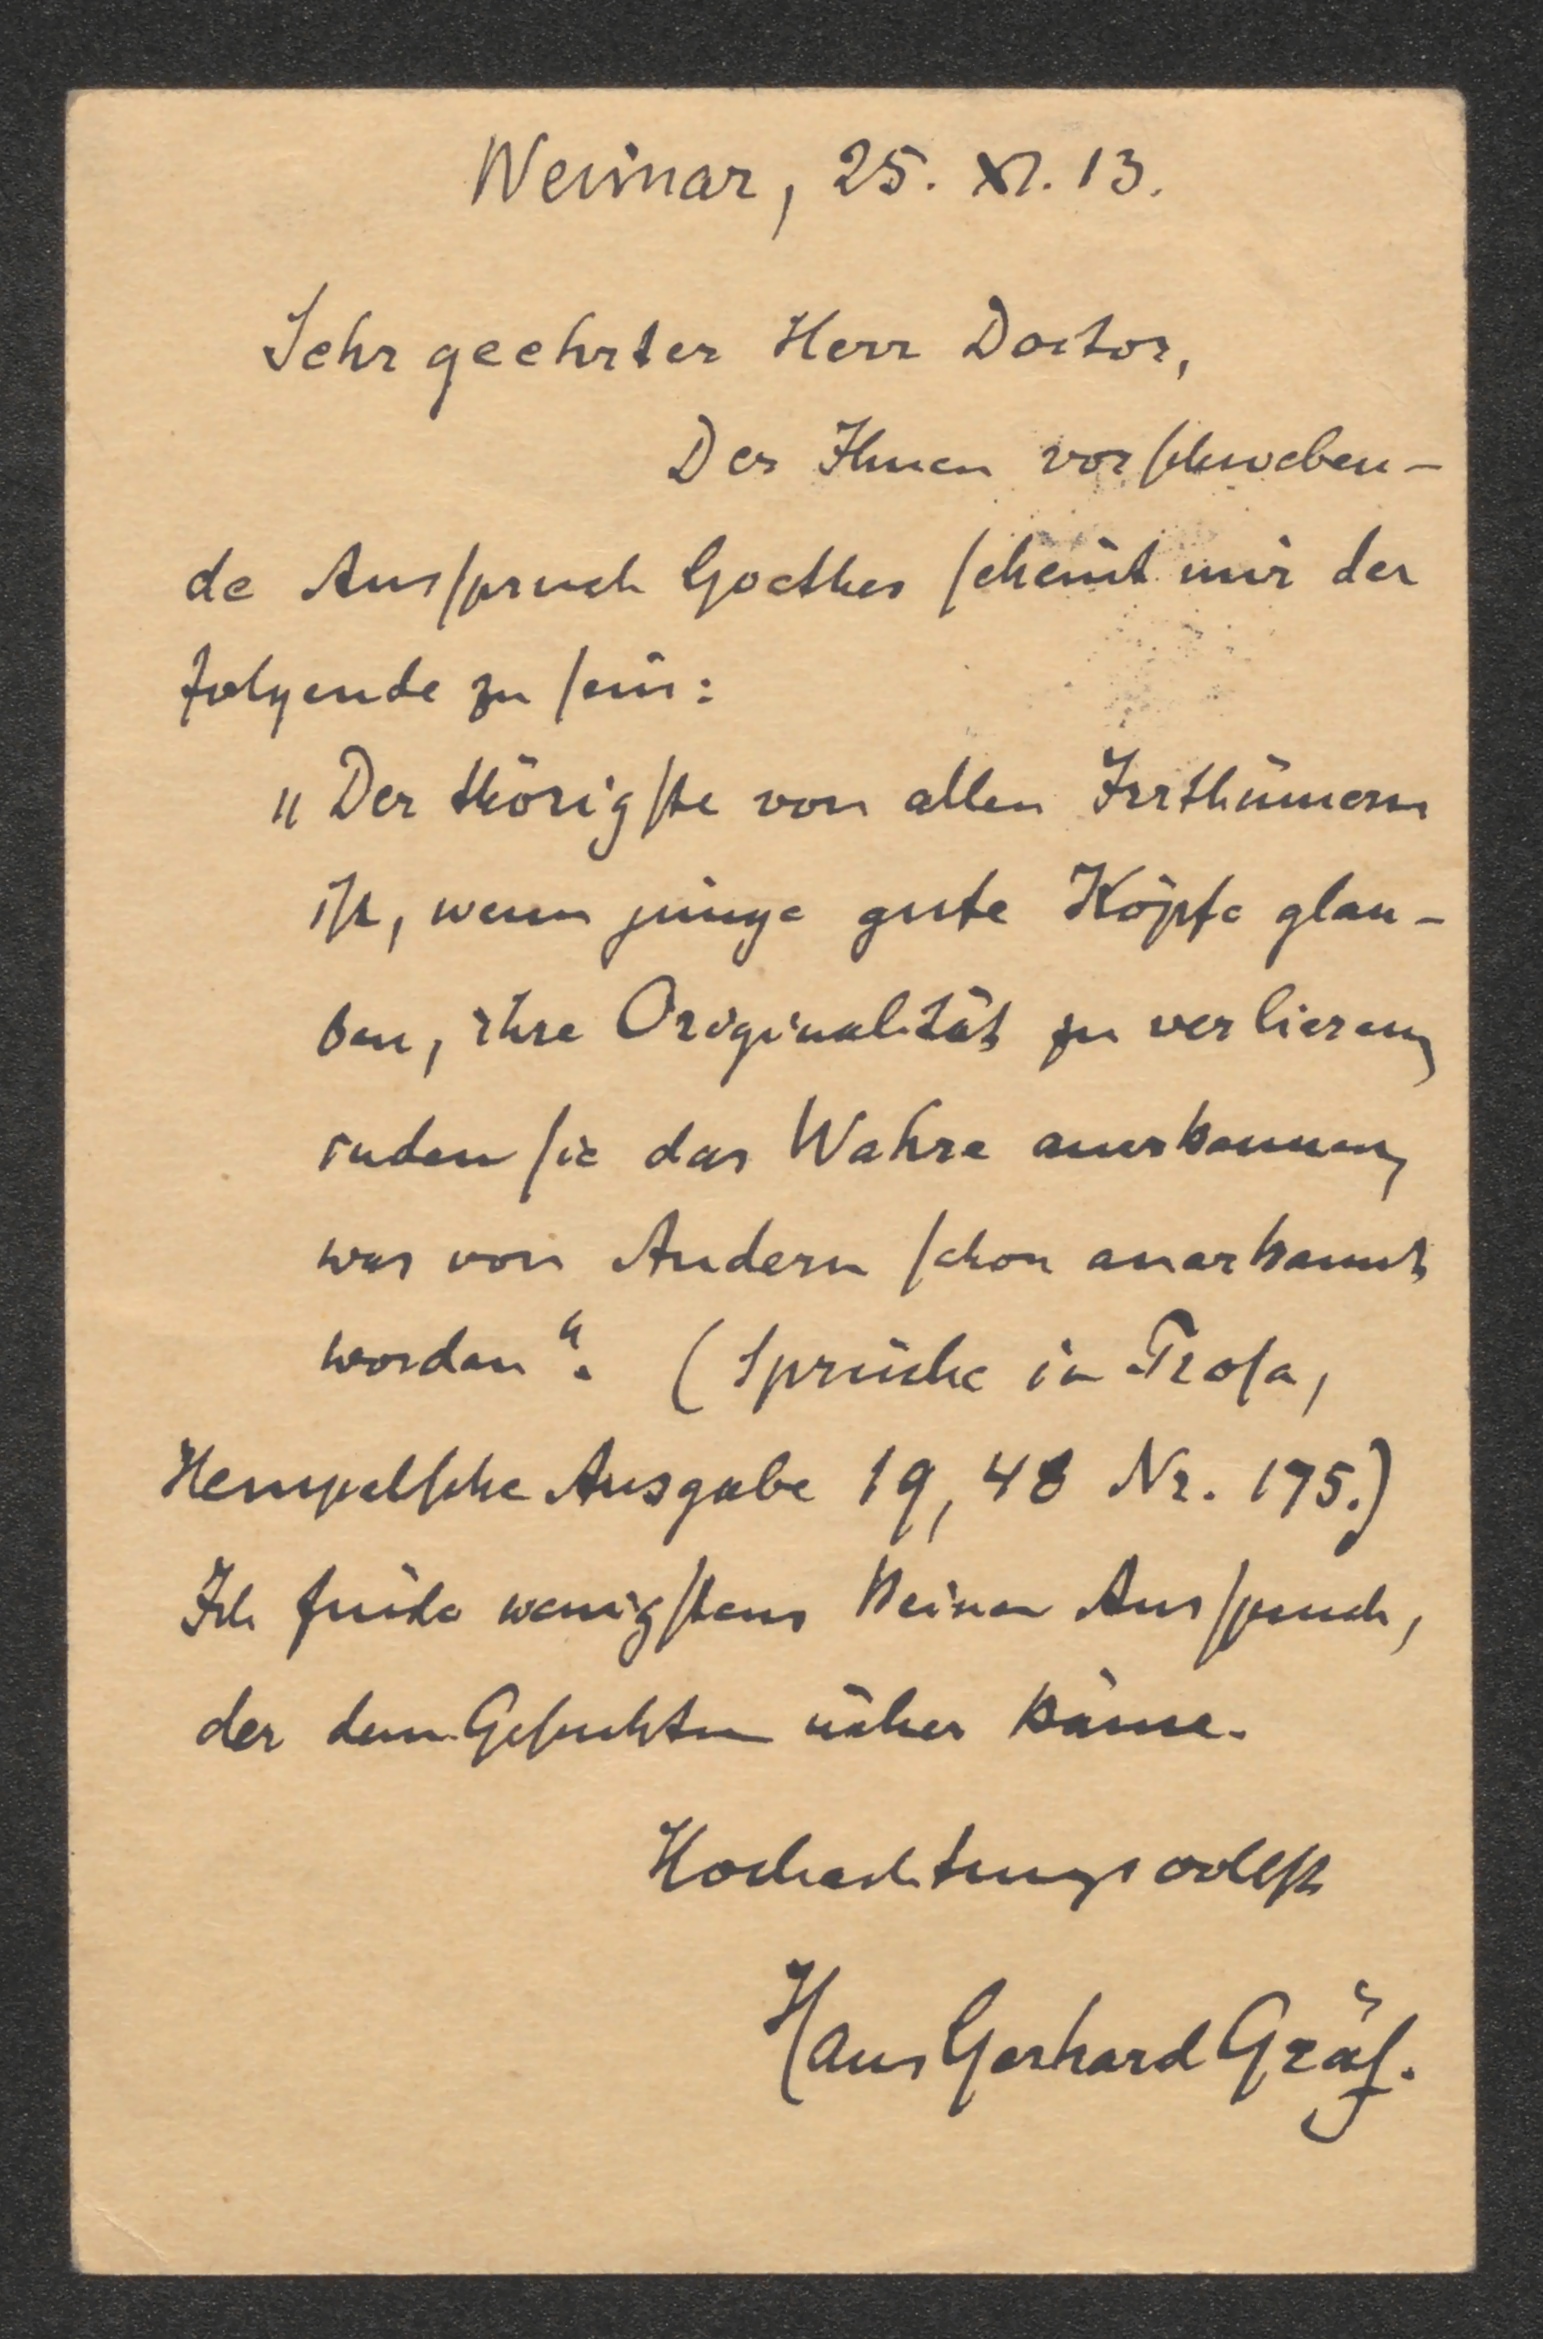 Weimar, 25. XI. 13.
Sehr geehrter Herr Doctor,
Der Ihnen vorschweben-
de Ausspruch Goethes scheint mir der
folgende zu sein:
„Der thörigste von allen Irrthümern
ist, wenn junge gute Köpfe glau-
ben, ihre Originalität zu verlieren,
indem sie das Wahre anerkennen,
was von Andern schon anerkannt
worden“. (Sprüche in Prosa,
Hempelsche Ausgabe 19, 48 Nr. 175.)
Ich finde wenigstens keinen Ausspruch,
der dem Gesuchten näher käme.
Hochachtungsvollst
Hans Gerhard Gräf.